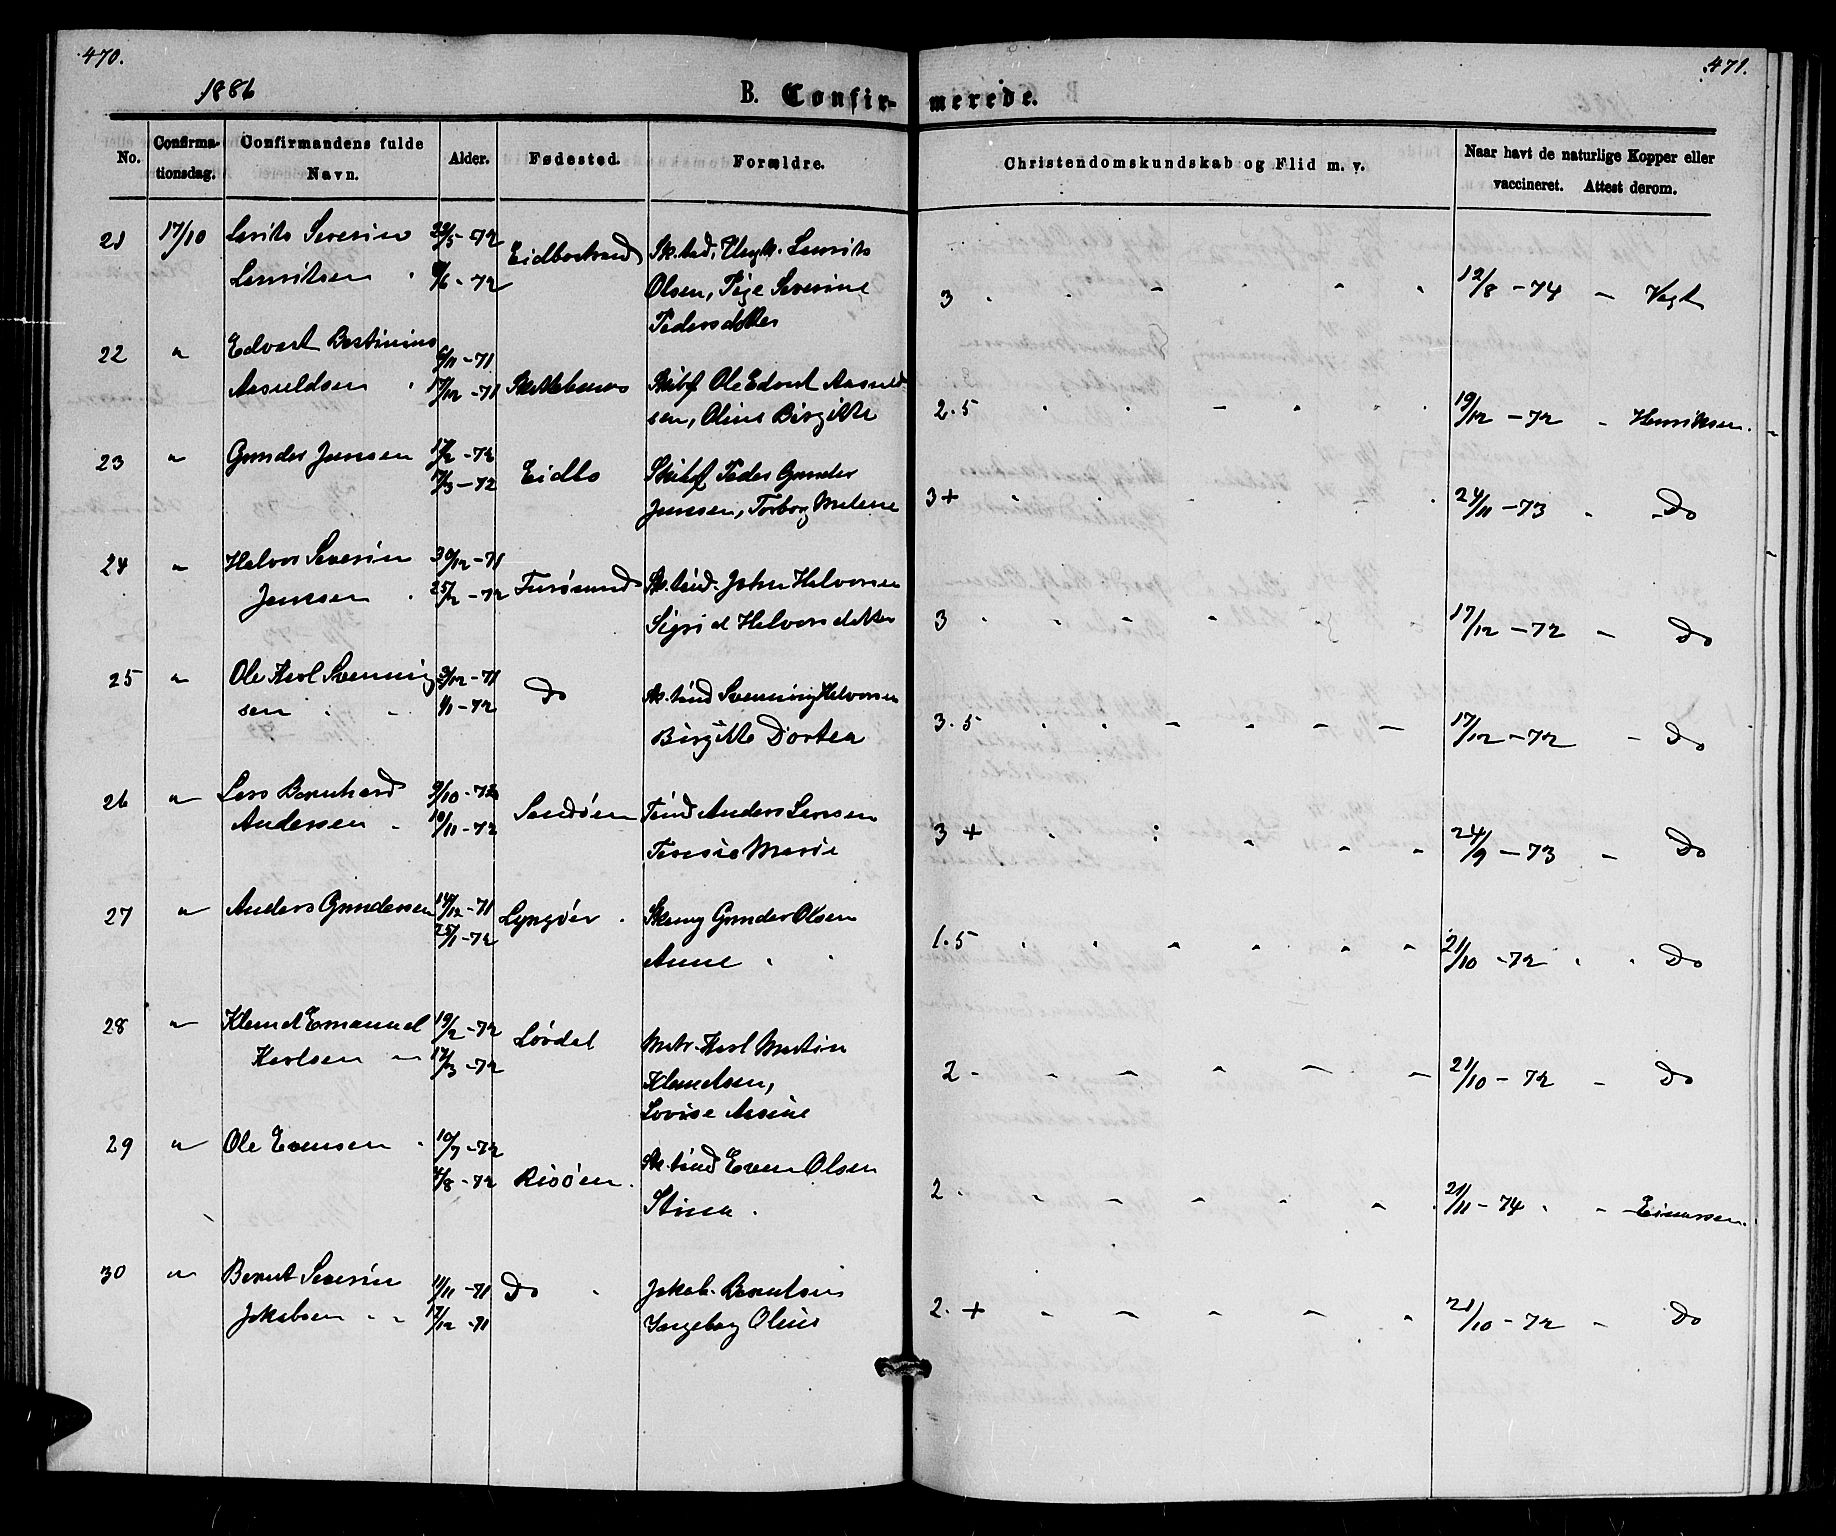 470.
471.
1886
B. Confir-
merede.
No.
Confirma-
tionsdag.
Confirmandens fulde
Navn.
Alder.
Fødested.
Forældre.
Christendomskundskab og Flid m. v.
Naar havt de naturlige Kopper eller
vaccineret. Attest derom.
21 17/10 Severin
Lauritsen 9/6 - 72
Eidbostrand
Laurits
Olsen, Severine
Pedersdatter
3 12/8 - 74 - Vogt
22 " Edvart Bertinius 6/11 - 71
Aanuldsen 17/12 - 71
Ole Edvart Aanuld
sen, Oline Birgitte
2.5 19/12 - 72 - Henriksen.
23 " Gunder Jensen 17/2 - 72
17/3 - 72
Eidbo
Peder Gunder
Jensen, Torborg Malene
3+ 24/11 - 73 - Do
24 " Halvor Severin 30/12 - 71
Jensen 25/2 - 72
Furøsund
John Halvorsen
Sigrid Halvorsdatter
3 17/12 - 72 - Do
25 " Ole Karl Svenning 9/12 - 71
sen 1/1 - 72
Do
Svenning Halvorsen
Birgitte Dortea
3.5 17/12 - 72 - Do
26 " Lars Bernhard 9/10 - 72
Andersen 10/11 - 72
Sandøen
Tind Anders Larsen
Teresie Marie
3 + 24/9 - 73 - Do
27 " Anders Gundersen 14/12 - 71
25/1 - 72
Lyngøer
Gunder Olsen
Anne
1.5 21/10 - 72 Do
28 " Klemet Emanuel 19/2 - 72
Karlsen 17/3 - 72
Lørdal
Matr. Karl Martin
Klemetsen,
Lovise Aasine
2 - 21/10 - 72 - Do
29 " Ole Evensen 10/7 - 72
4/8 - 72
Risøen.
Even Olsen
Stina.
2 21/11 - 74 - Einarsen.
30 " Berent Severin 11/11 - 71
Jakobsen 17/12 - 71
Do
Jakob Berentsen
Ingeborg Oline
2. + 21/10 - 72 - Do